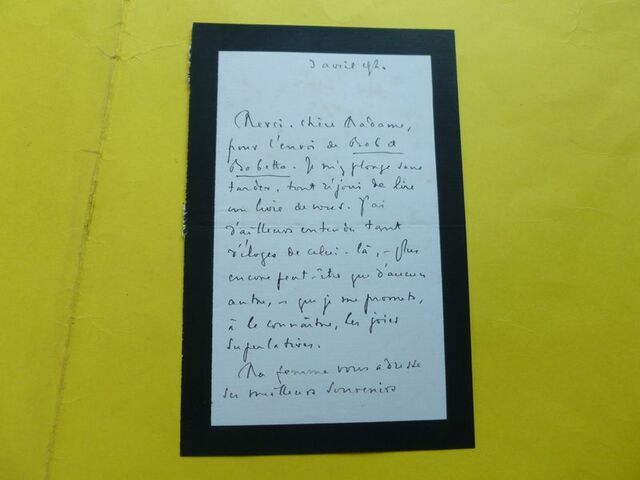 3 avril 92.
Merci, chère Madame,
pour l'envoi de Bob &
Bobette. Je m'y plonge sans
tarder, tout réjoui de lire
un livre de vous. J'ai
d'ailleurs entendu tant
d'éloges de celui-là, – plus
encore peut-être que d'aucun
autre, – que je me promets,
à le connaître, les joies
superlatives.
Ma femme vous adresse
ses meilleurs souvenirs